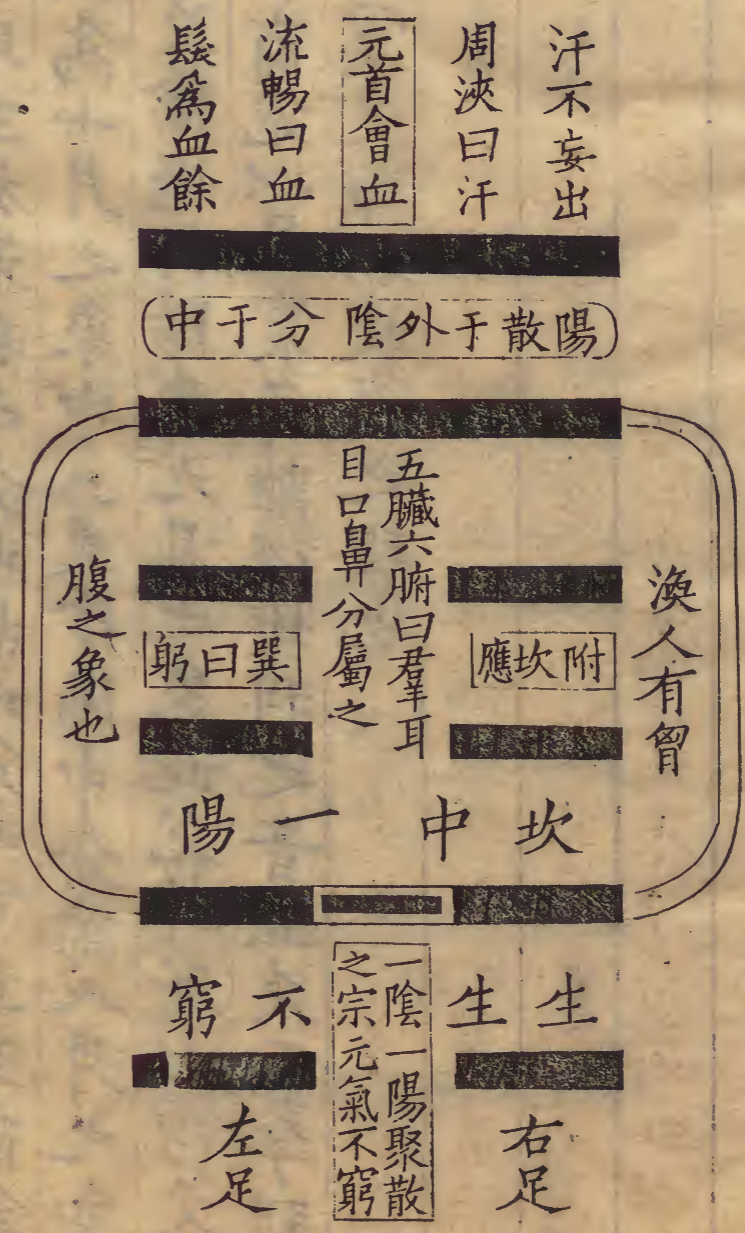 汗不妄出
周浹曰汗
元首會血
流暢曰血
髮為血餘
陽散于外陰分于中
渙人有胷
附坎應
五臟六腑曰羣耳
目口鼻分屬之
巽曰躬
腹之象也
坎中一陽
生生不窮
一陰一陽聚散
之宗元氣不窮
右足
左足